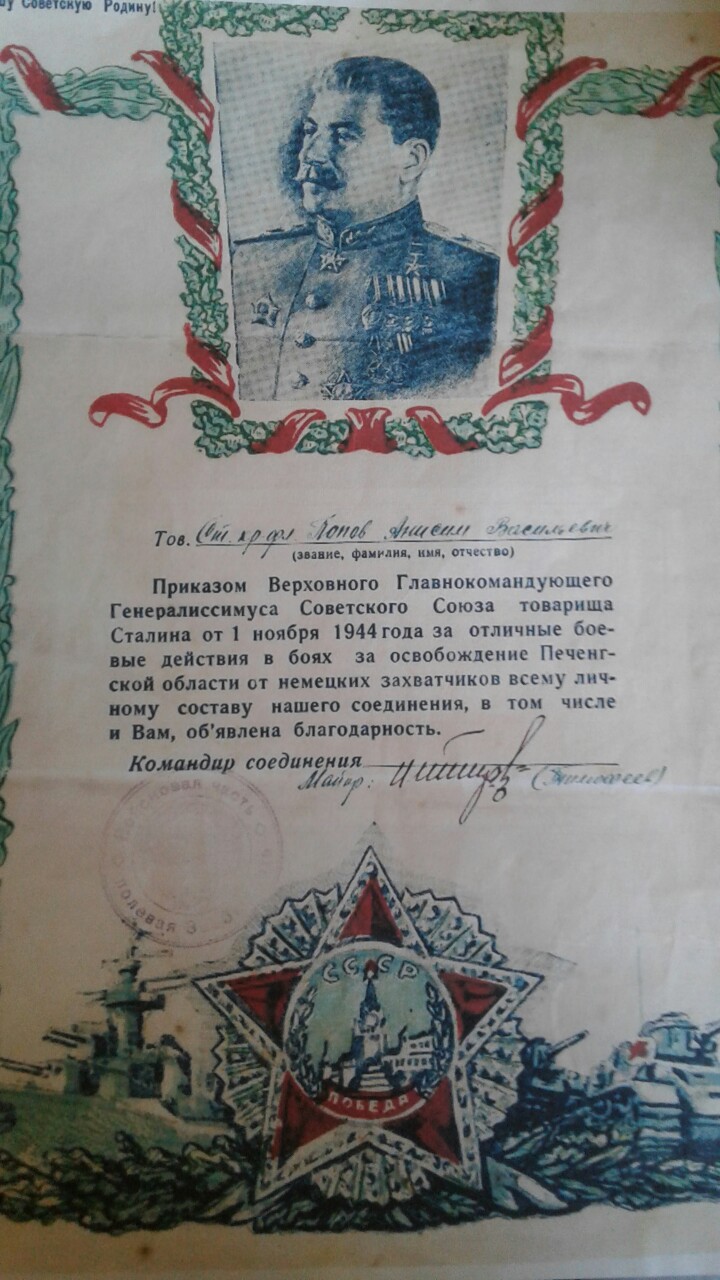 шу Советскую Родину!
Тов. Ст. кр-фл Попов Анисим Васильевич
(звание, фамилия, имя, отчество)
Приказом Верховного Главнокомандующего
Генералиссимуса Советского Союза товарища
Сталина от 1 ноября 1944 года за отличные бое-
вые действия в боях за освобождение Печенг-
ской области от немецких захватчиков всему лич-
ному составу нашего соединения, в том числе
и Вам, об'явлена благодарность.
Командир соединения
Майор:
войсковая часть
полевая
СССР
ПОБЕДА